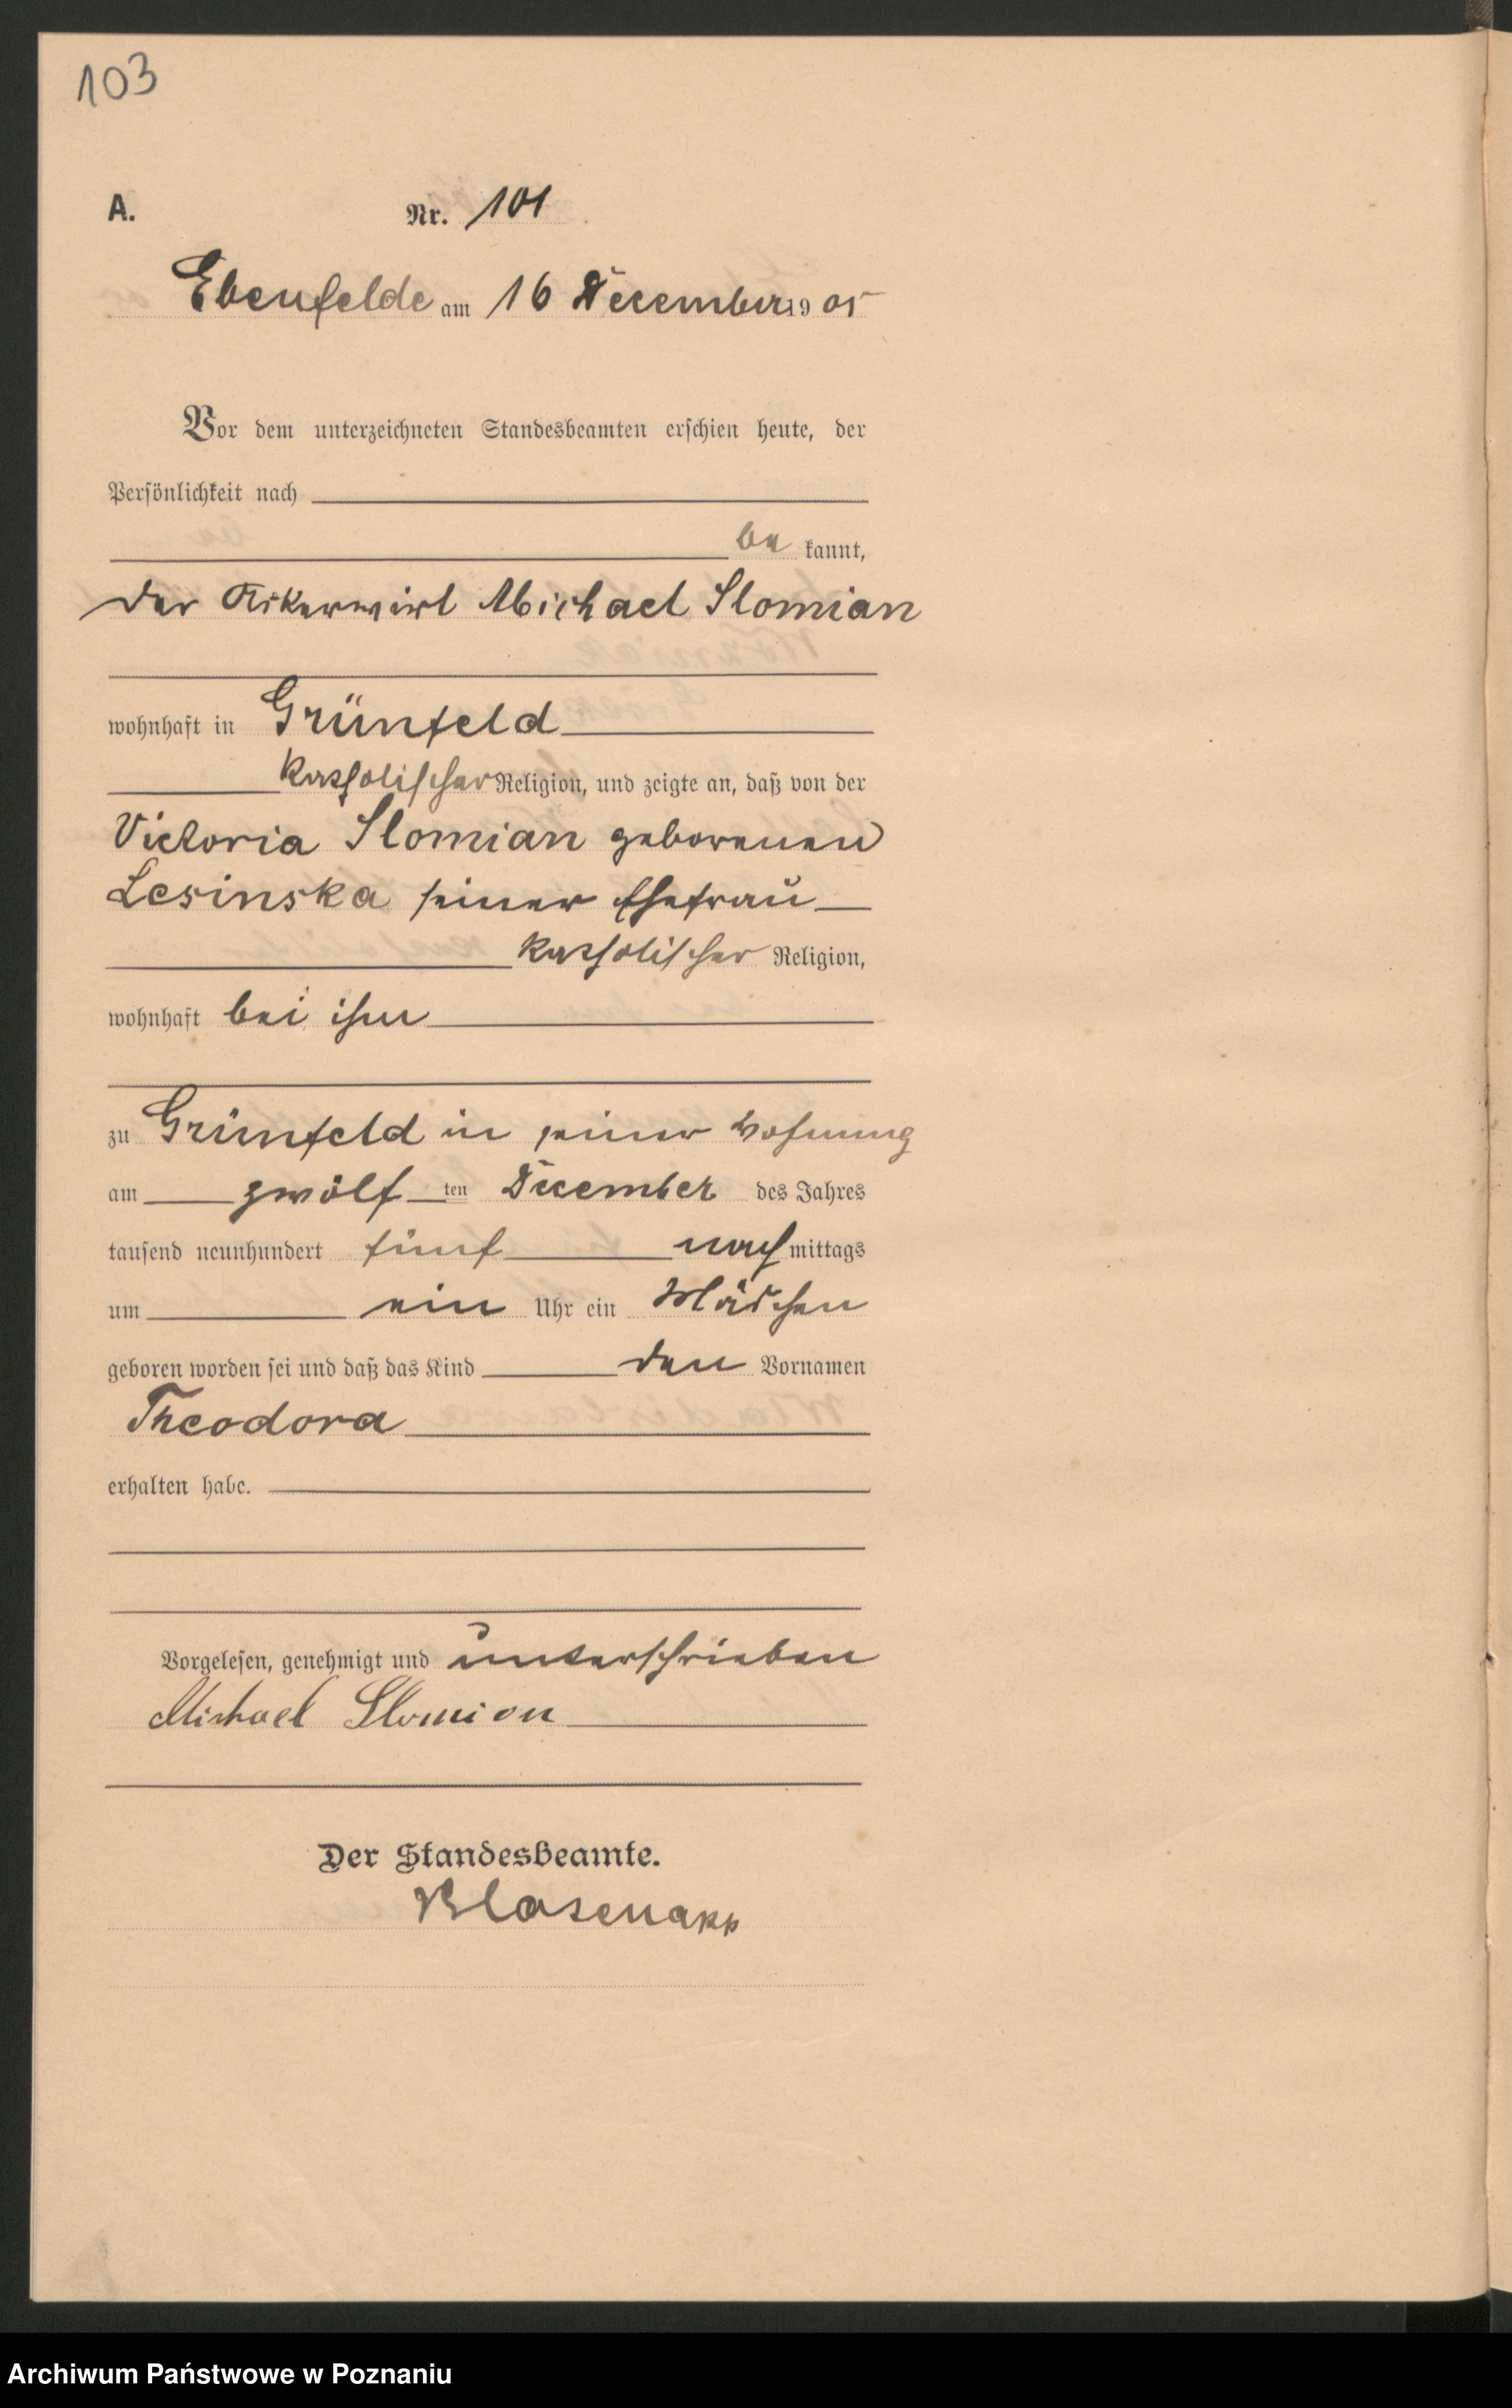 103
A. Nr. 101
Ebenfelde am 16 December 19 05
Vor dem unterzeichneten Standesbeamten erschien heute, der
Persönlichkeit nach
be kannt,
der Ackerwirt Michael Slomian
wohnhaft in Grünfeld
katholischer Religion, und zeigte an, daß von der
Victoria Slomian geborenen
Lesinska seiner Ehefrau
katholischer Religion,
wohnhaft bei ihm
zu Grünfeld in seiner Wohnung
am zwölf ten December des Jahres
tausend neunhundert fünf nach mittags
um ein Uhr ein Mädchen
geboren worden sei und daß das Kind den Vornamen
Theodora
erhalten habe.
Vorgelesen, genehmigt und unterschrieben
Michael Slomion
Der Standesbeamte.
Blasenapp
Archiwum Państwowe w Poznaniu